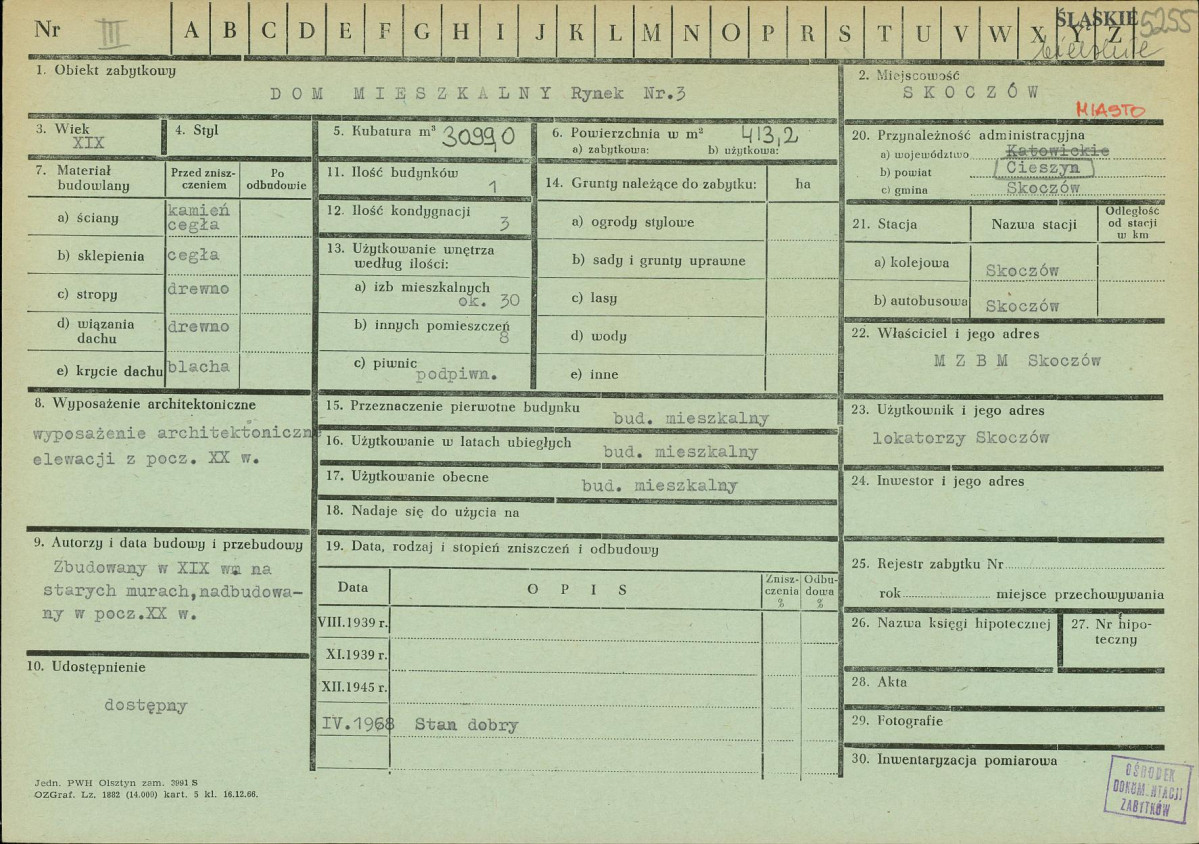 Nr III A B C D E F G H I J K L M N O P R S T U V W X Y Z
ŚLĄSKIE 5255
bielskie
1. Obiekt zabytkowy
DOM MIESZKALNY Rynek Nr.3
2. Miejscowość
SKOCZÓW
MIASTO
3. Wiek
XIX
4. Styl
5. Kubatura m³ 3099,0
6. Powierzchnia w m² 413,2
a) zabytkowa: b) użytkowa:
7. Materiał budowlany
Przed zniszczeniem
Po odbudowie
a) ściany kamień cegła
b) sklepienia cegła
c) stropy drewno
d) wiązania dachu drewno
e) krycie dachu blacha
11. Ilość budynków
1
12. Ilość kondygnacji
3
13. Użytkowanie wnętrza według ilości:
a) izb mieszkalnych
ok. 30
b) innych pomieszczeń
8
c) piwnic
podpiwn.
14. Grunty należące do zabytku: ha
a) ogrody stylowe
b) sady i grunty uprawne
c) lasy
d) wody
e) inne
20. Przynależność administracyjna
a) województwo Katowickie
b) powiat Cieszyn
c) gmina Skoczów
21. Stacja Nazwa stacji Odległość od stacji w km
a) kolejowa Skoczów
b) autobusowa Skoczów
22. Właściciel i jego adres
M Z B M Skoczów
8. Wyposażenie architektoniczne
wyposażenie architektoniczn
elewacji z pocz. XX w.
15. Przeznaczenie pierwotne budynku
bud. mieszkalny
16. Użytkowanie w latach ubiegłych
bud. mieszkalny
17. Użytkowanie obecne
bud. mieszkalny
18. Nadaje się do użycia na
23. Użytkownik i jego adres
lokatorzy Skoczów
24. Inwestor i jego adres
9. Autorzy i data budowy i przebudowy
Zbudowany w XIX w. na
starych murach, nadbudowa-
ny w pocz.XX w.
19. Data, rodzaj i stopień zniszczeń i odbudowy
Data OPIS Zniszczenia % Odbudowa %
VIII.1939 r.
XI.1939 r.
XII.1945 r.
IV.1968 Stan dobry
25. Rejestr zabytku Nr
rok miejsce przechowywania
26. Nazwa księgi hipotecznej
27. Nr hipoteczny
10. Udostępnienie
dostępny
28. Akta
29. Fotografie
30. Inwentaryzacja pomiarowa
OŚRODEK
DOKUM_NTACJI
ZABYTKÓW
Jedn. PWH Olsztyn zam. 3991 S
OZGraf. Lz. 1882 (14.000) kart. 5 kl. 16.12.66.